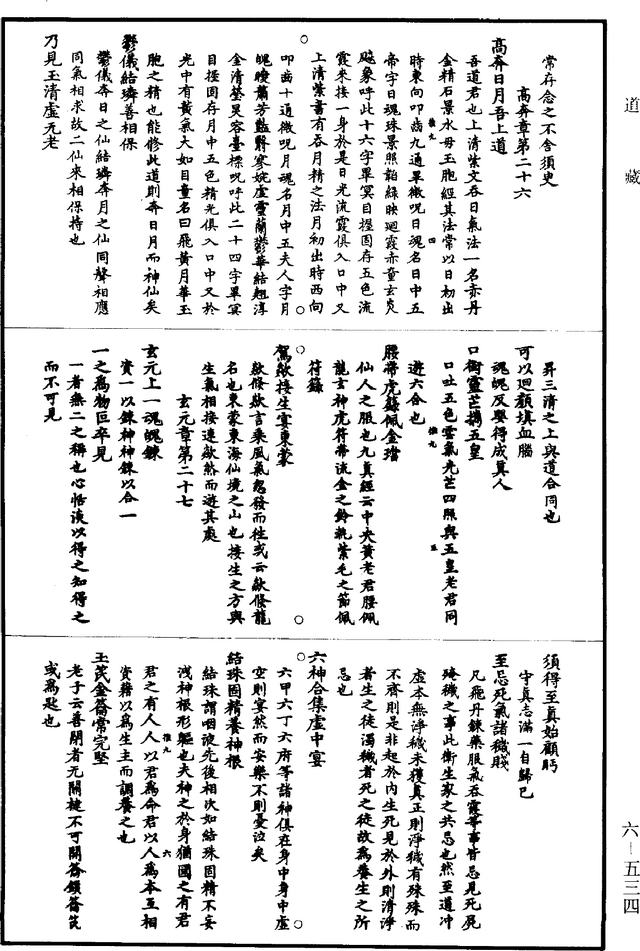 道藏
常存念之不舍須臾
高奔章第二十六
高奔日月吾上道
吾道君也上清紫文吞日氣法一名赤丹
金精石景水母玉胞經其法常以日初出
時東向叩齒九通畢微呪日魂名日中五
帝字日魂珠景照韜綠映迴霞赤童玄炎
飈象呼此十六字畢瞑目握固存五色流
霞來接一身於是日光流霞俱入口中又
上清紫書有吞月精之法月初出時西向
叩齒十通微呪月魂名月中五夫人字月
魄曖蕭芳艷翳寥婉虛靈蘭鬱華結翹淳
金清瑩炅容臺標呪呼此二十四字畢瞑
目握固存月中五色精光俱入口中又於
光中有黃氣大如目童名曰飛黃月華玉
胞之精也能修此道則奔日月而神仙矣
鬱儀結璘善相保
鬱儀奔日之仙結璘奔月之仙同聲相應
同氣相求故二仙來相保持也
乃見玉清虛无老
昇三清之上與道合同也
可以迴顏填血腦
魂魄反嬰得成真人
口銜靈芒攜五皇
口吐五色雲氣光芒四照與五皇老君同
遊六合也
腰帶虎籙佩金璫
仙人之服也九真經云中央黃老君腰佩
龍玄神虎符帶流金之鈴執紫毛之節佩
符籙
駕欻接生宴東蒙
欻倏欻言乘風氣忽發而往或云欻倏龍
名也東蒙東海仙境之山也接生之方與
生氣相接連欻然而遊其處
玄元章第二十七
玄元上一魂魄鍊
資一以鍊神神鍊以合一
一之為物叵卒見
一者無二之稱也心恬淡以得之知得之
而不可見
須得至真始顧眄
守真志滿一自歸已
至忌死氣諸穢賤
凡飛丹鍊藥服氣吞霞等事皆忌見死屍
殗穢之事此衛生家之共忌也然至道沖
虛本無淨穢未獲真正則淨穢有殊殊而
不齊則是非起於內生死見於外則清淨
者生之徒濁穢者死之徒故為養生之所
忌也
六神合集虛中宴
六甲六丁六府等諸神俱在身中身中虛
空則宴然而安樂不則憂泣矣
結珠固精養神根
結珠謂咽液先後相次如結珠固精不妄
洩神根形軀也夫神之於身猶國之有君
君之有人人以君為命君以人為本互相
資藉以為生主而調養之也
玉芘金籥常完堅
老子云善閉者无關楗不可開籥鎖籥芘
或為匙也
六－五三四